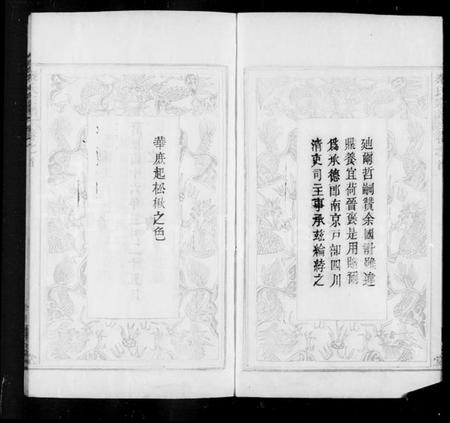 廸爾哲嗣贊余國計雖違
祿養宜荷晉褒是用贈爾
爲承德郎南京戶部四川
清吏司主事承玆綸綍之
華庶起松楸之色